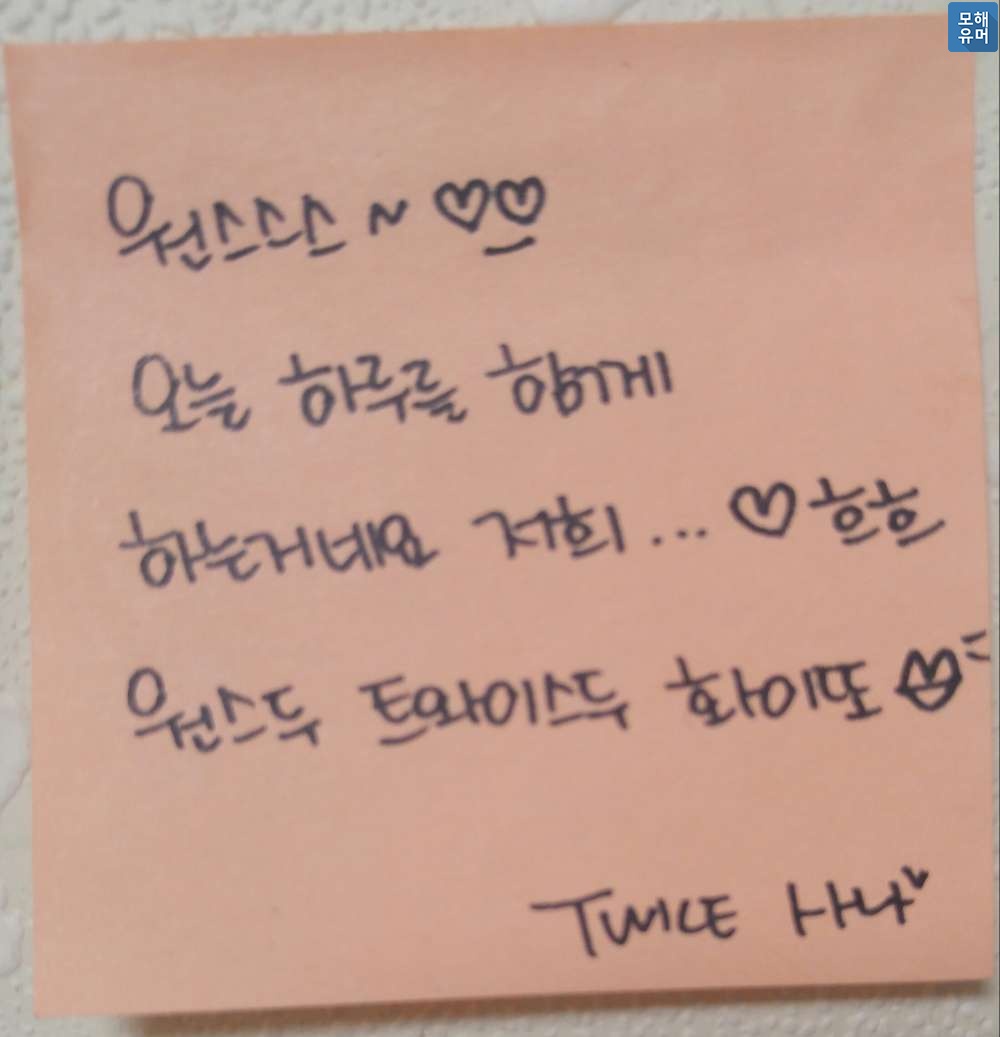 모해
유머
원스스스~♡♡
오늘 하루를 함께
하는거네요 저희...♡흐흐
원스두 트와이스두 화이또♡
TWICE 사나♥